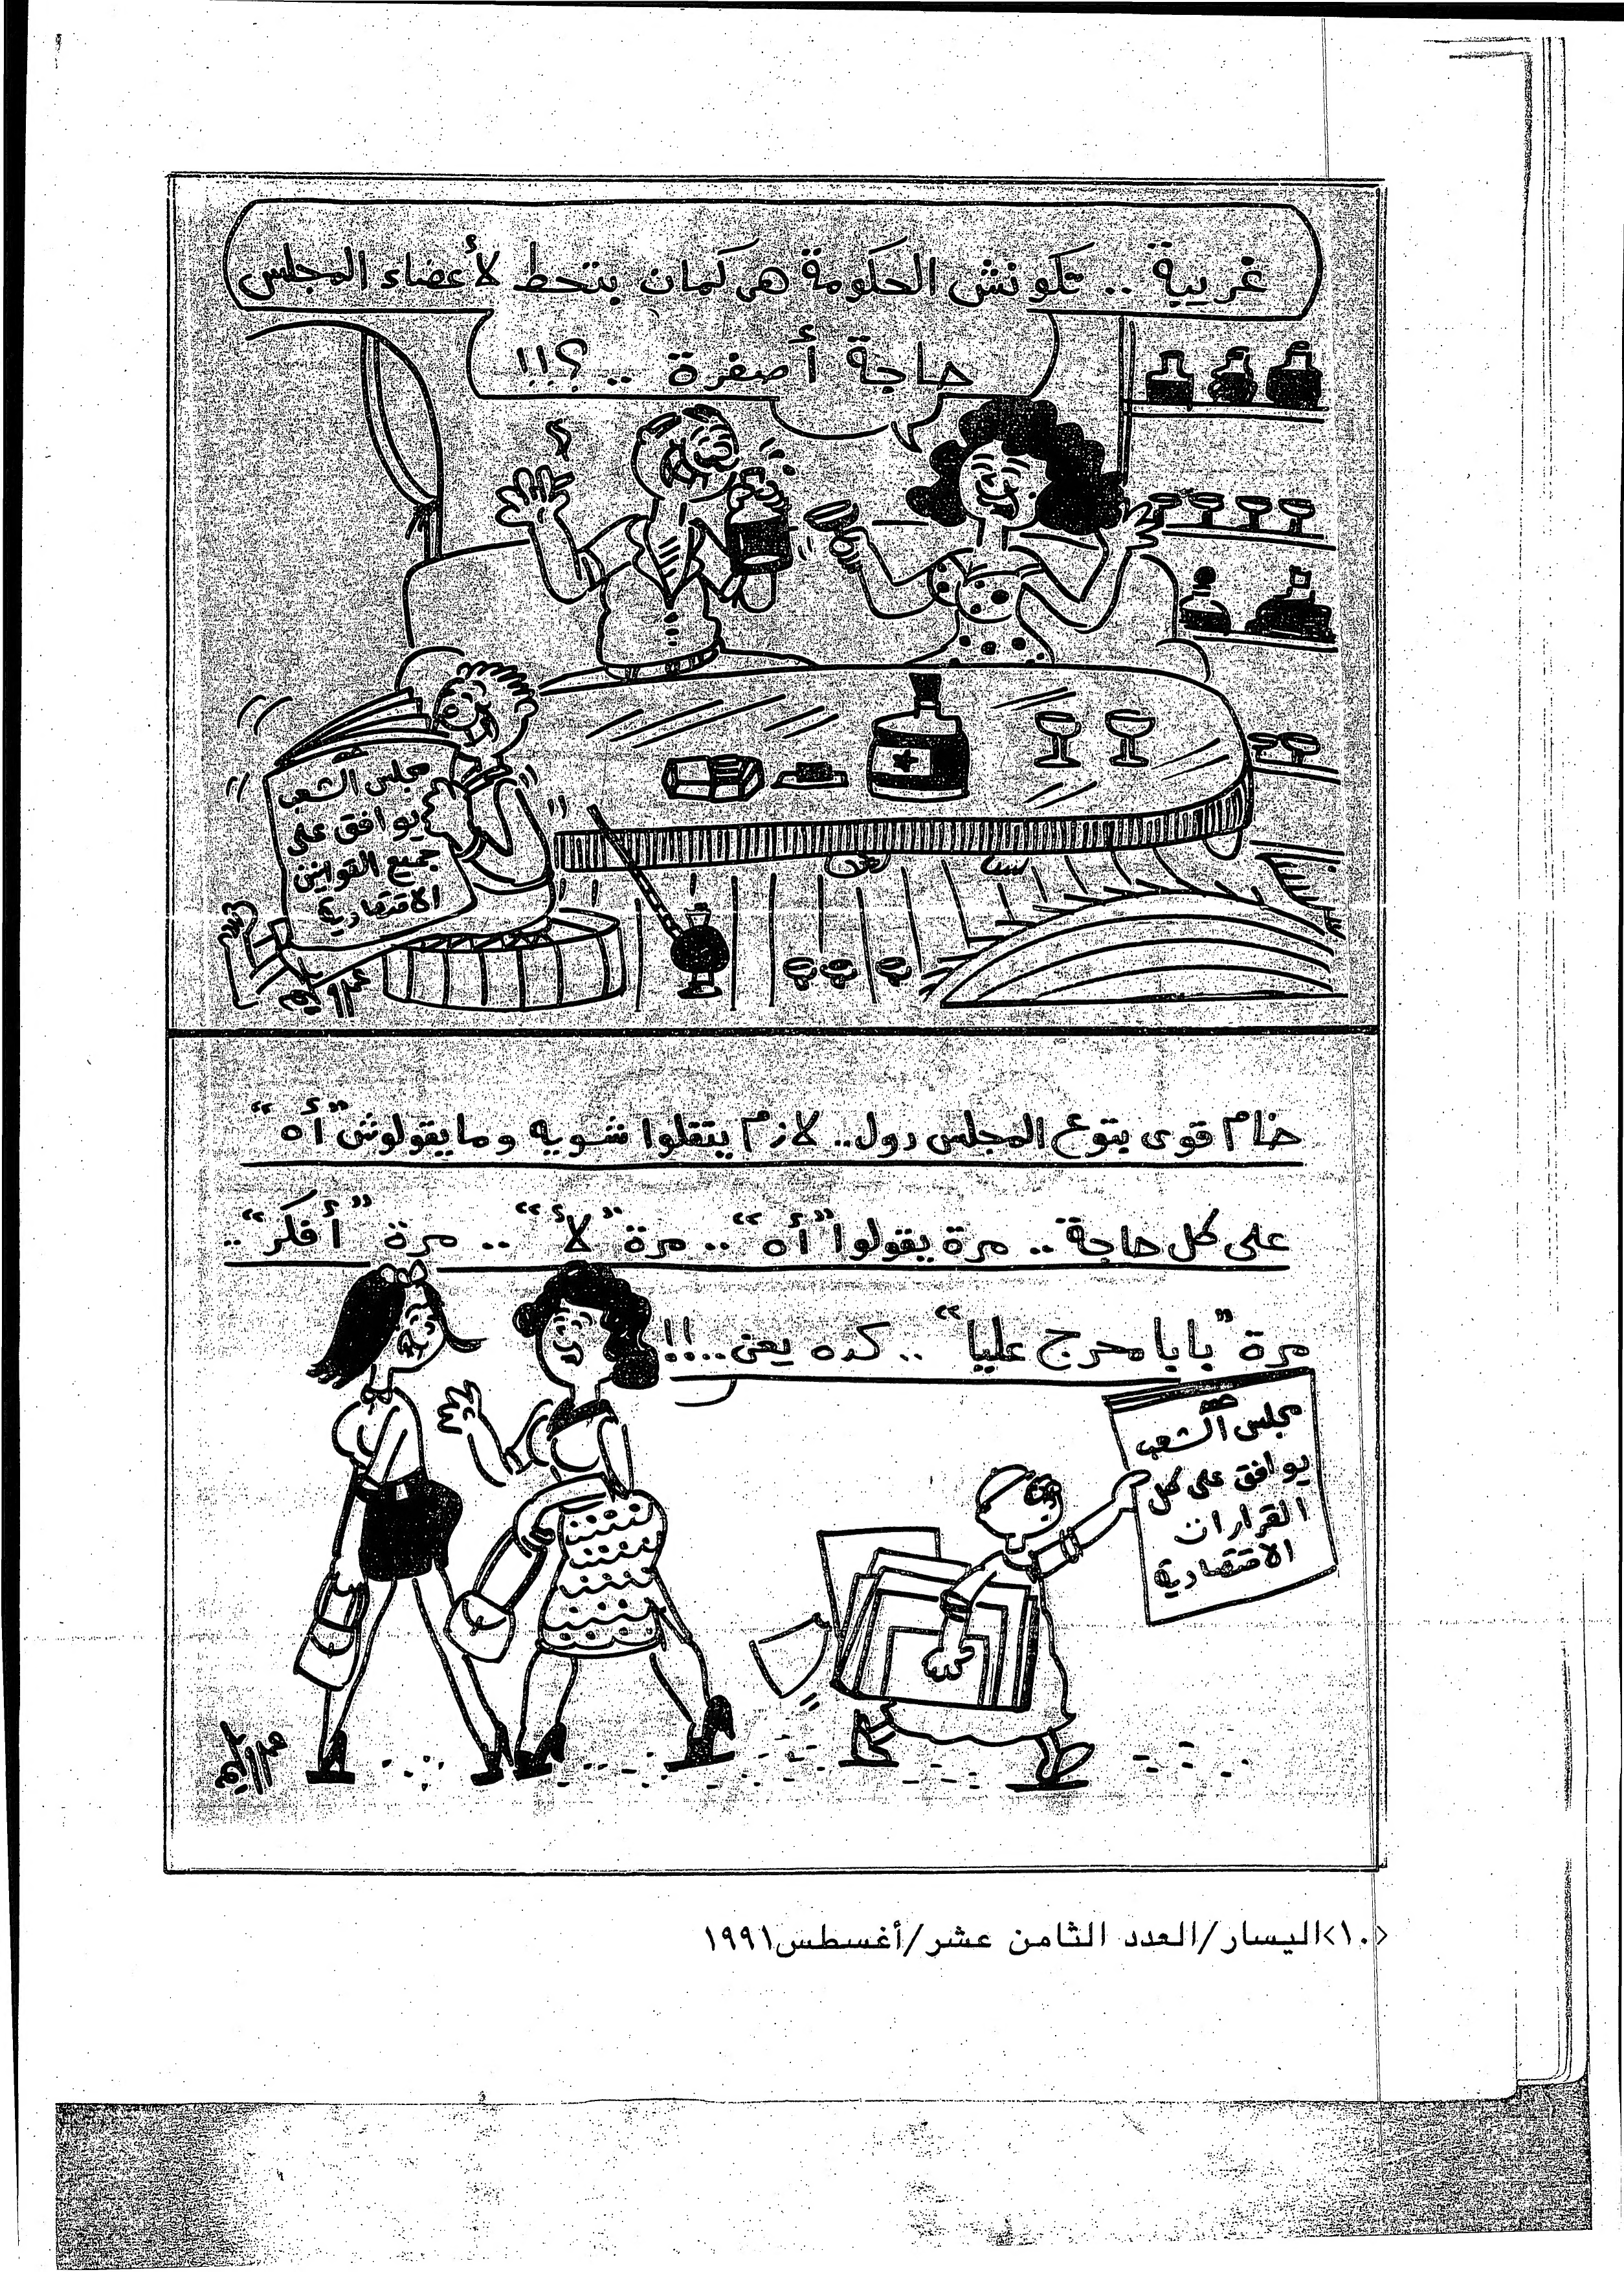 غريبة .. تكونش الحكومة هى كمان بتحط لأعضاء المجلس
حاجة أصفرة .. ؟!!
مجلس الشعب
يوافق على
جميع القوانين
الاقتصادية
عمرو سليم
خام قوى بتوع المجلس دول.. لازم يتقلوا شويه وما يقولوش "أه"
على كل حاجة .. مرة يقولوا "أه" .. مرة "لأ" .. مرة "أفكر" ..
مرة "بابا محرج عليا" .. كده يعنى ..!!
مجلس الشعب
يوافق على كل
القرارات
الاقتصادية
عمرو سليم
<١٠>اليسار/العدد الثامن عشر/أغسطس١٩٩١